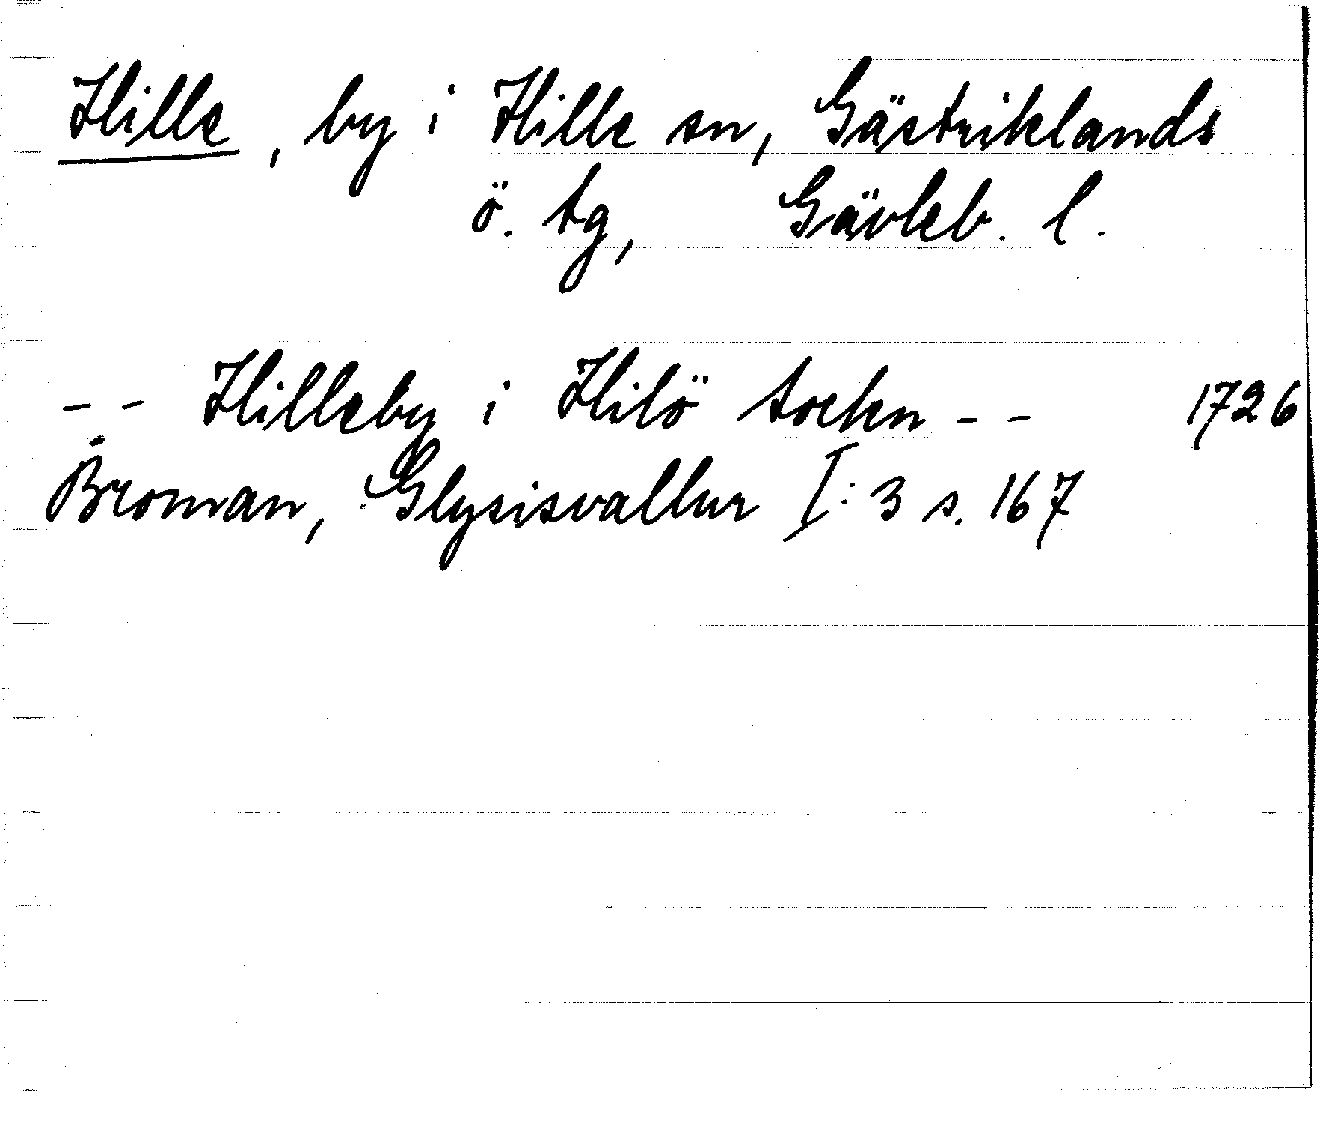 Hille, by i Hille sn, Gästriklands
ö. tg, Gävleb. l.
-- Hilleby i Hilö sochn -- 1726
Broman, Glysisvallur I:3 s. 167